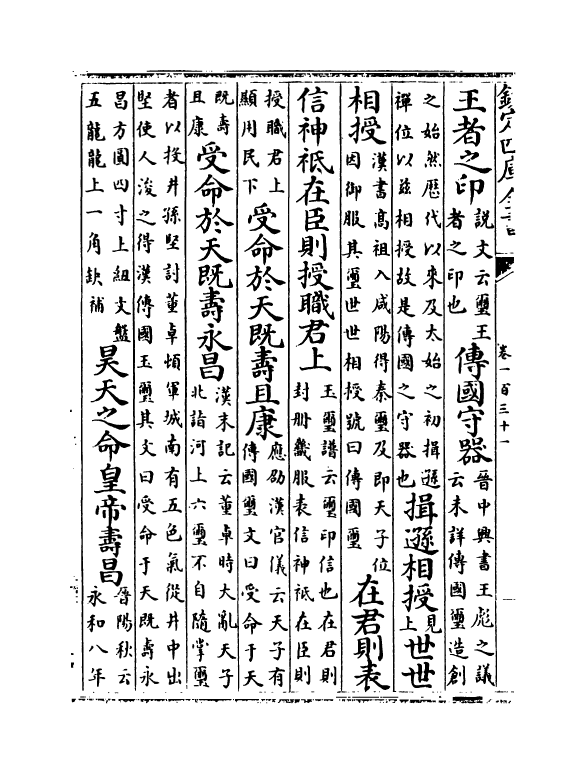 欽定四庫全書
卷一百三十一
王者之印說文云璽王者之印也傳國守器晉中興書王彪之議云未詳傳國璽造創
之始然歷代以來及太始之初揖遜禪位以茲相授故是傳國之守器也揖遜相授見上世世
相授漢書髙祖入咸陽得秦璽及即天子位因御服其璽世世相授號曰傳國璽在君則表
信神祗在臣則授職君上玉璽譜云璽印信也在君則封册畿服表信神祗在臣則
授職君上顯用民下受命於天既壽且康應劭漢官儀云天子有傳國璽文曰受命于天
既壽且康受命於天既壽永昌漢末記云董卓時大亂天子北詣河上六璽不自隨掌璽
者以投井孫堅討董卓頓軍城南有五色氣從井中出堅使人浚之得漢傳國玉璽其文曰受命于天既壽永
昌方圜四寸上紐文盤五龍龍上一角缺補昊天之命皇帝壽昌晉陽秋云永和八年